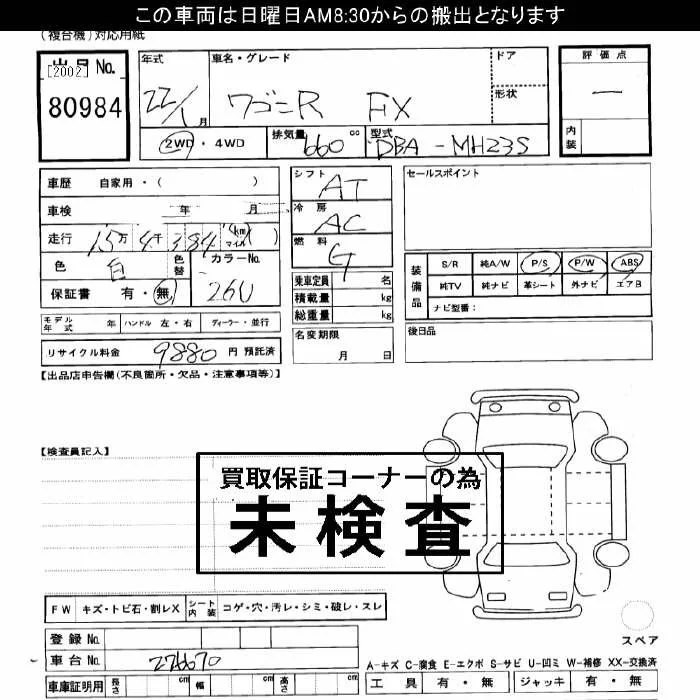 この車両は日曜日AM8:30からの搬出となります
(複合機)対応用紙
出品No.
[2002]
80984
年式 22/1月
車名・グレード ワゴンR FX
ドア
形状
評価点 一
内装
2WD・4WD
排気量 660 cc
型式 DBA-MH23S
車歴 自家用・( )
車検 年 月
走行 15万4千384 (km マイル)
色 白
色替
カラーNo. 26U
保証書 有・無
シフト AT
冷房 AC
燃料 G
乗車定員 名
積載量 kg
総重量 kg
セールスポイント
装備品
S/R 純A/W P/S P/W ABS
純TV 純ナビ 革シート 外ナビ エアB
ナビ型番:
モデル年式 年 ハンドル 左・右 ディーラー・並行
名変期限 月 日
後日品
リサイクル料金 9880 円 預託済
【出品店申告欄(不良箇所・欠品・注意事項等)】
【検査員記入】
買取保証コーナーの為
未検査
FW キズ・トビ石・割レX
シート内装 コゲ・穴・汚レ・シミ・破レ・スレ
スペア
登録No.
車台No. 276670
A-キズ C-腐食 E-エクボ S-サビ U-凹ミ W-補修 XX-交換済
車庫証明用 長さ cm 幅 cm 高さ cm
工具 有・無 ジャッキ 有・無